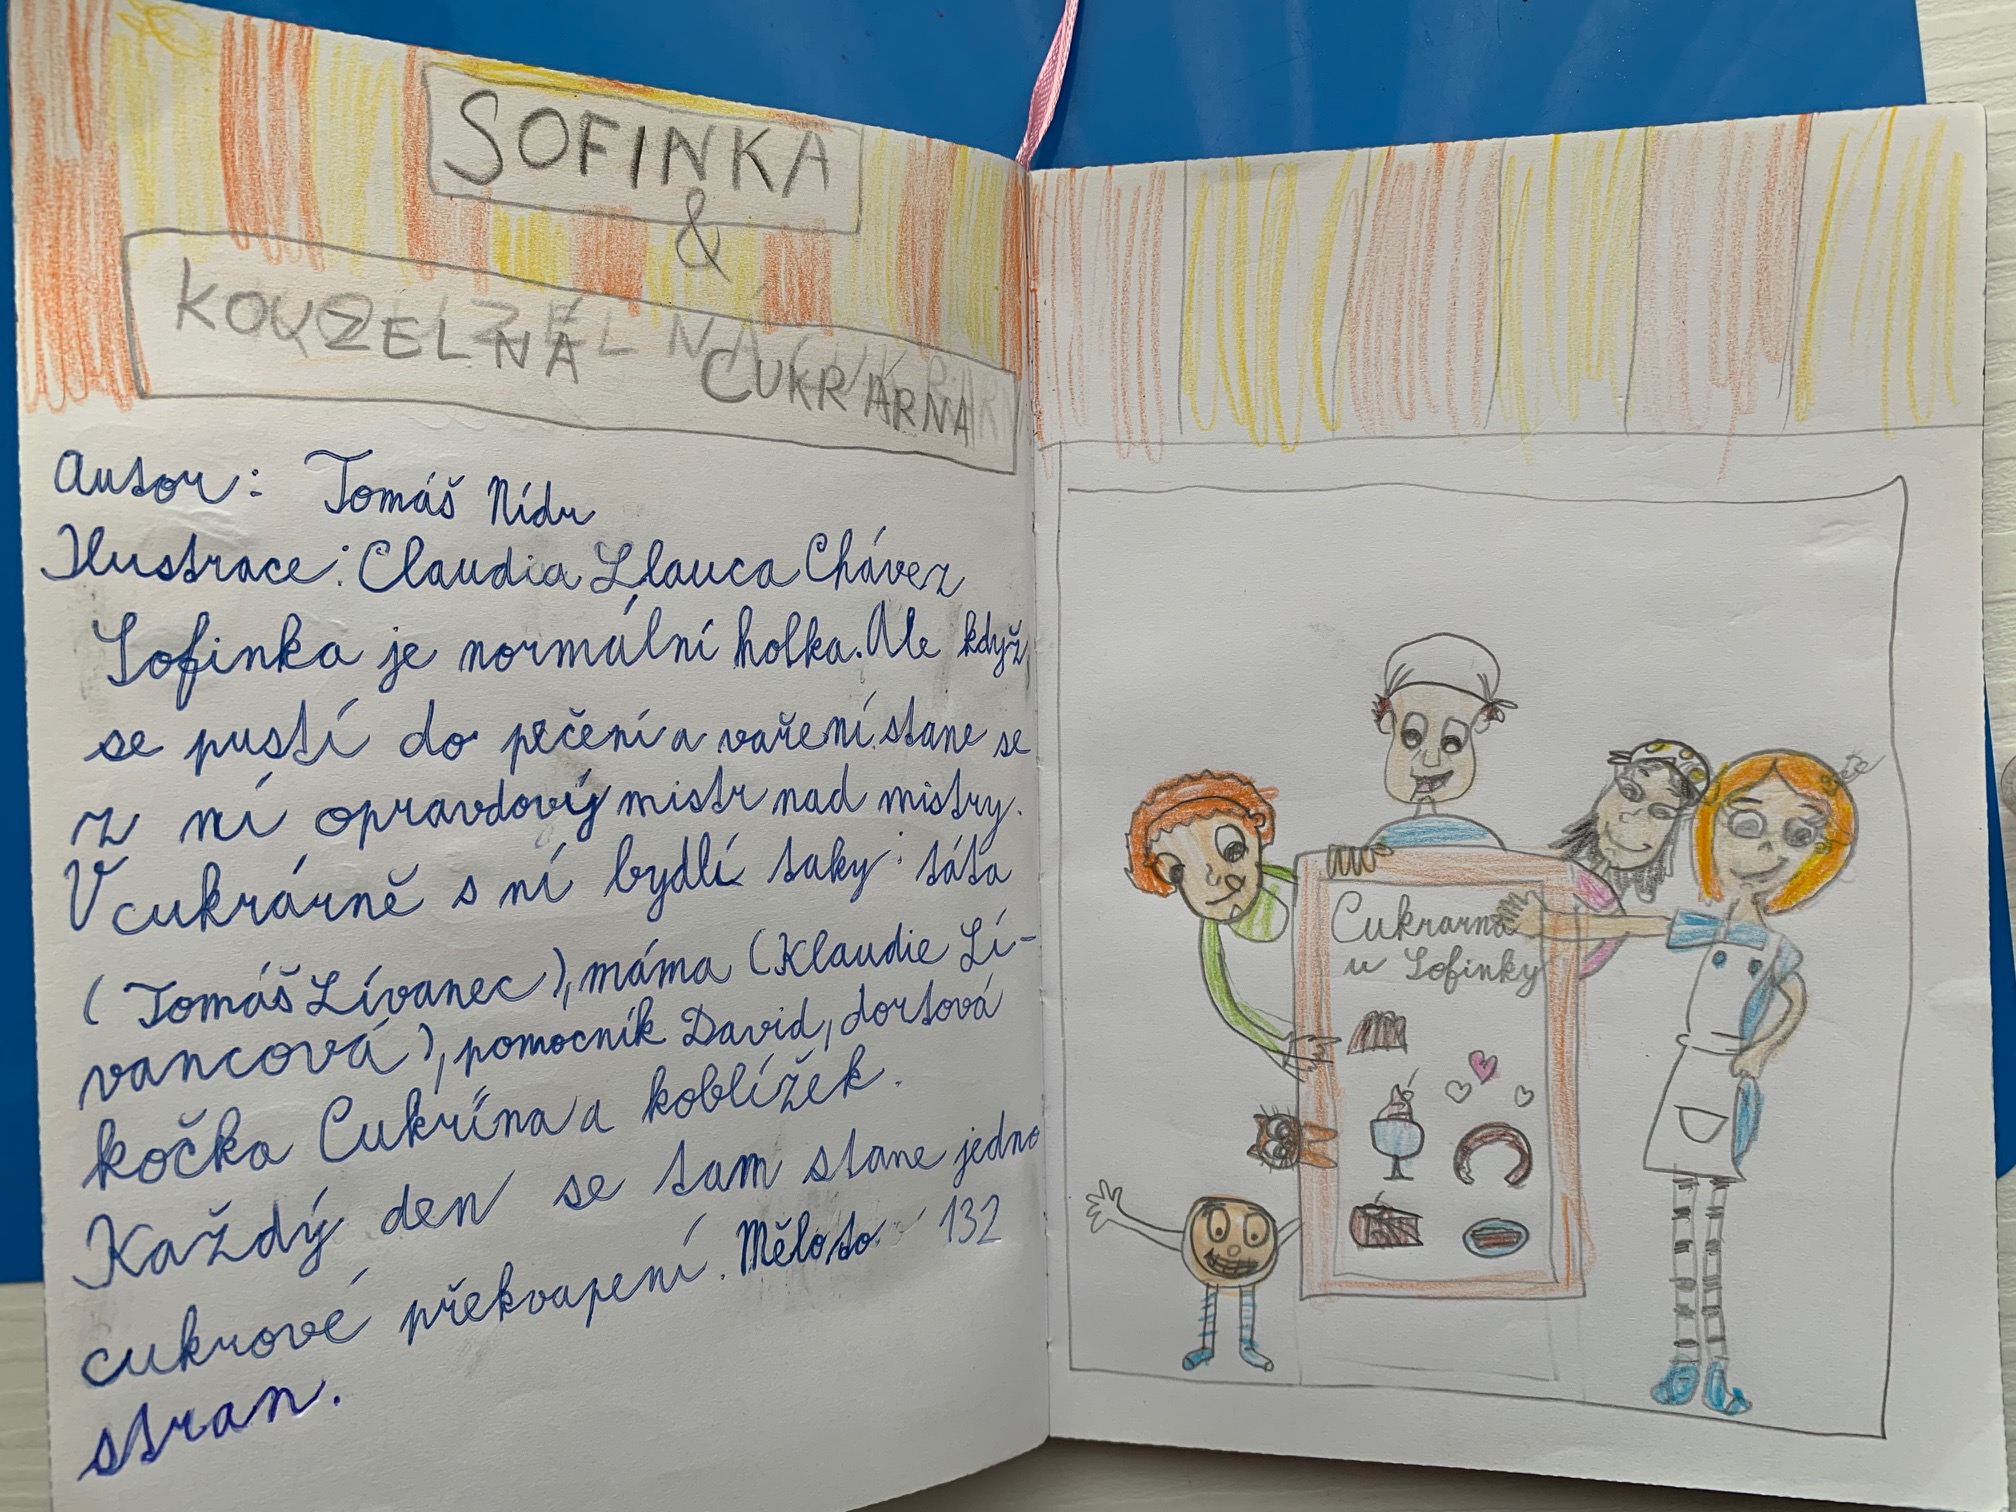 SOFINKA
&
KOUZELNÁ CUKRARNA
Autor: Tomáš Nídr
Ilustrace: Claudia Llauca Chávez
Sofinka je normální holka. Ale když
se pustí do pečení a vaření stane se
z ní opravdový mistr nad mistry.
V cukrárně s ní bydlí taky: táta
(Tomáš Lívanec), máma (Klaudie Lí-
vancová), pomocník David, dortová
kočka Cukřína a koblížek.
Každý den se tam stane jedno
cukrové překvapení. Mělo to 132
stran.
Cukrarna
u Sofinky